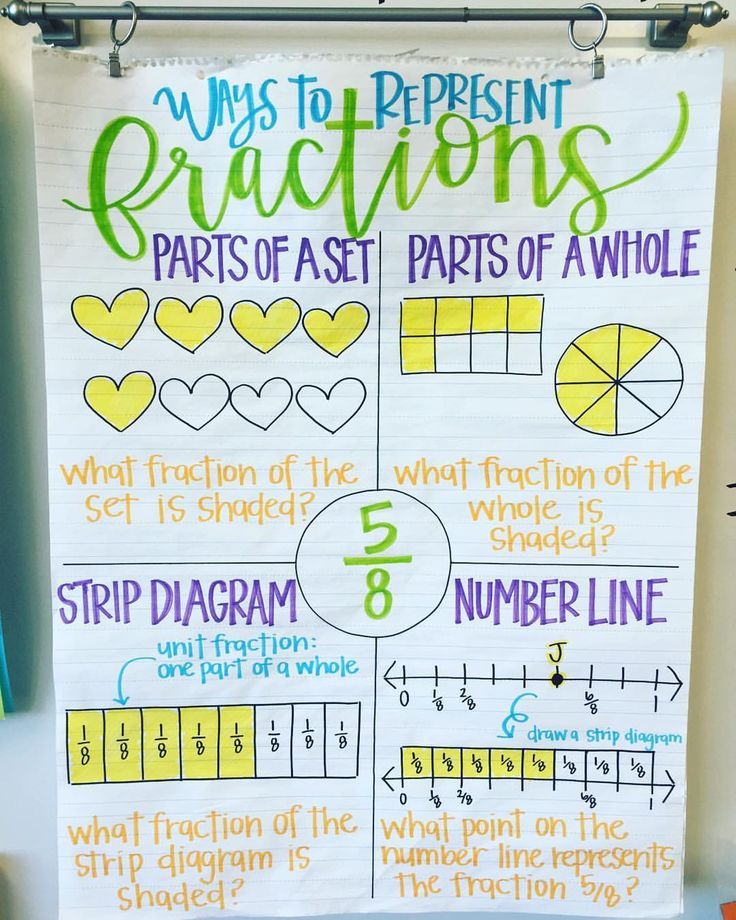 Ways to Represent
fractions
PARTS OF A SET
what fraction of the
set is shaded?
PARTS OF A WHOLE
what fraction of the
whole is
shaded?
5/8
STRIP DIAGRAM
unit fraction:
one part of a whole
1/8 1/8 1/8 1/8 1/8 1/8 1/8 1/8
what fraction of the
strip diagram is
shaded?
NUMBER LINE
J
0 1/8 2/8 6/8 1
draw a strip diagram
1/8 1/8 1/8 1/8 1/8 1/8 1/8 1/8
0 1/8 2/8 6/8 1
what point on the
number line represents
the fraction 5/8?